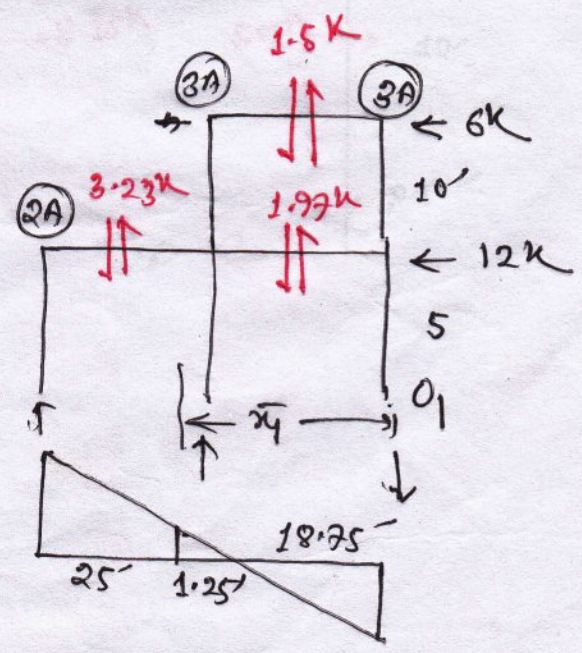 1.5K
3A
3A
6K
10'
3.23K
1.97K
2A
12K
5
O1
x̄1
18.75'
25'
1.25'